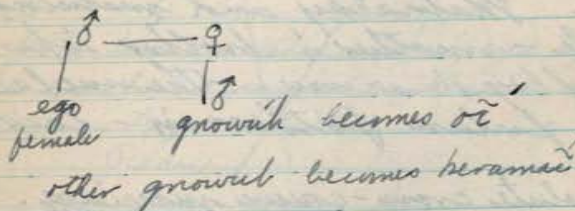 ♂ — ♀
ego ♂
female gnowuh becomes oĩ
other gnowuh becomes keramaĩ